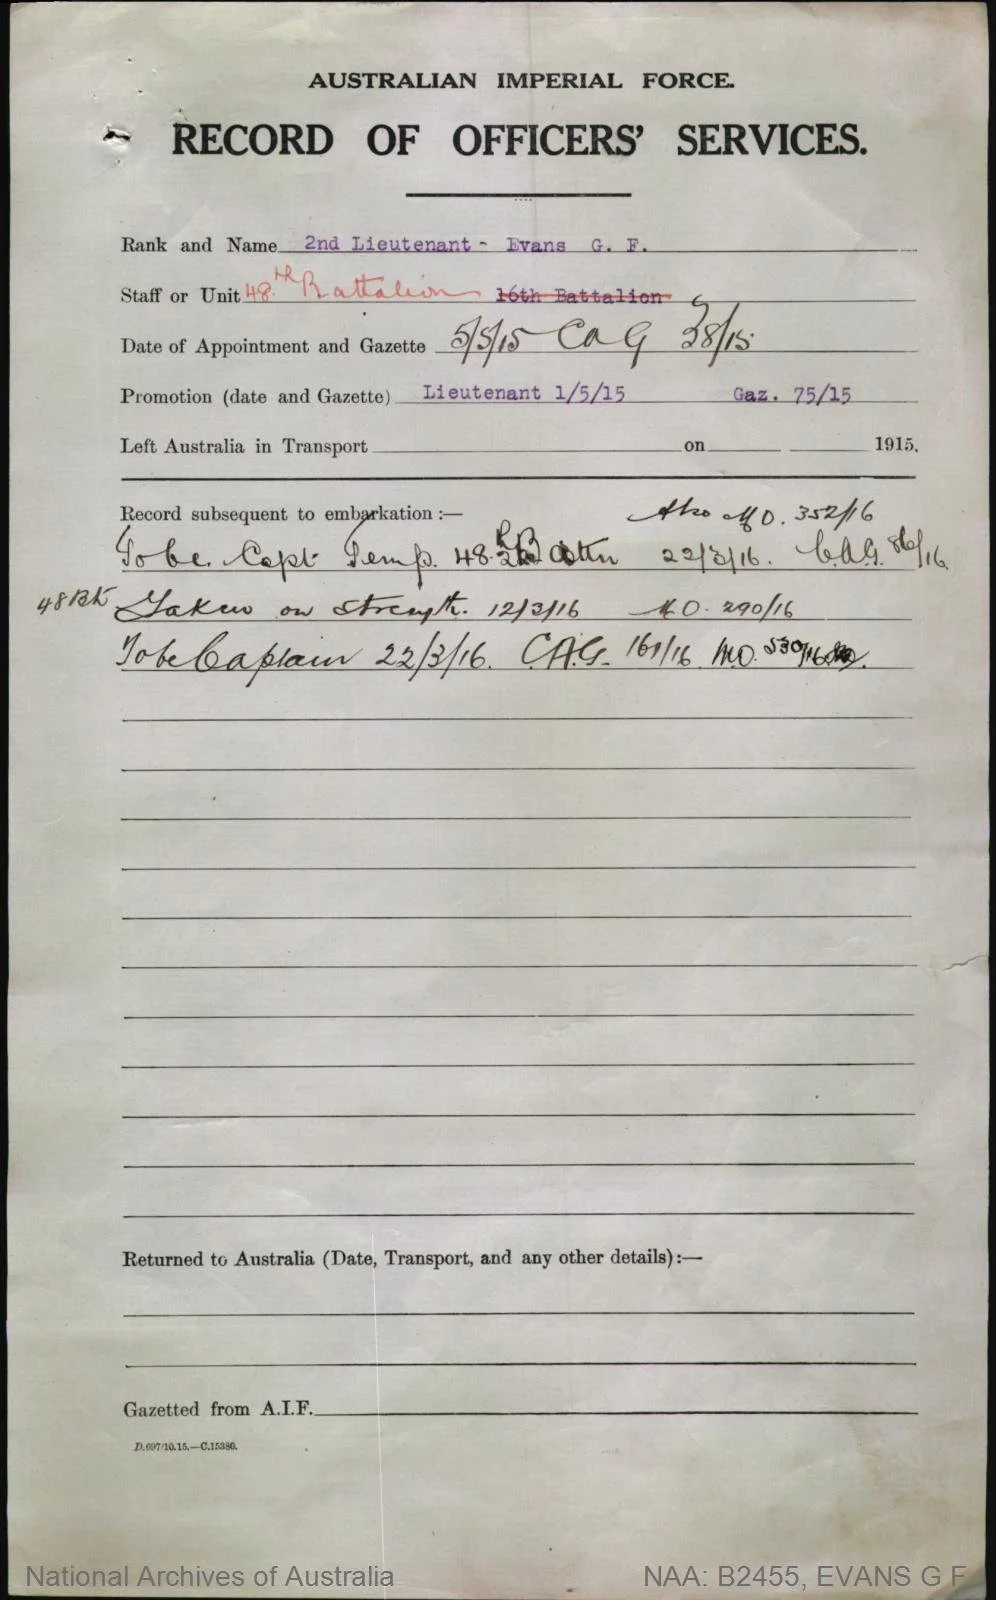 AUSTRALIAN IMPERIAL FORCE.
RECORD OF OFFICERS' SERVICES.
Rank and Name 2nd Lieutenant - Evans G. F.
Staff or Unit 48th Battalion 16th Battalion
Date of Appointment and Gazette 5/5/15 CAG 38/15
Promotion (date and Gazette) Lieutenant 1/5/15 Gaz. 75/15
Left Australia in Transport on 1915.
Record subsequent to embarkation :— Also M.O. 352/16
To be Capt. Temp. 48th Battn 22/3/16. C.A.G. 86/16
48 Btn Taken on strength. 12/3/16 M.O. 290/16
To be Captain 22/3/16. C.A.G. 161/16 M.O. 530/16
Returned to Australia (Date, Transport, and any other details) :—
Gazetted from A.I.F.
D.697/10.15.—C.15380.
National Archives of Australia NAA: B2455, EVANS G F